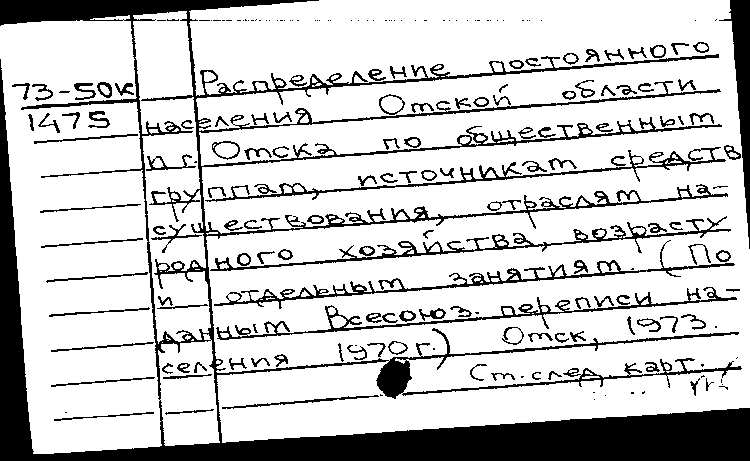 73-50к
1475
Распределение постоянного
населения Омской области
и г. Омска по общественным
группам, источникам средств
существования, отраслям на-
родного хозяйства, возрасту
и отдельным занятиям. (По
данным Всесоюз. переписи на-
селения 1970 г.) Омск, 1973.
См. след. карт.